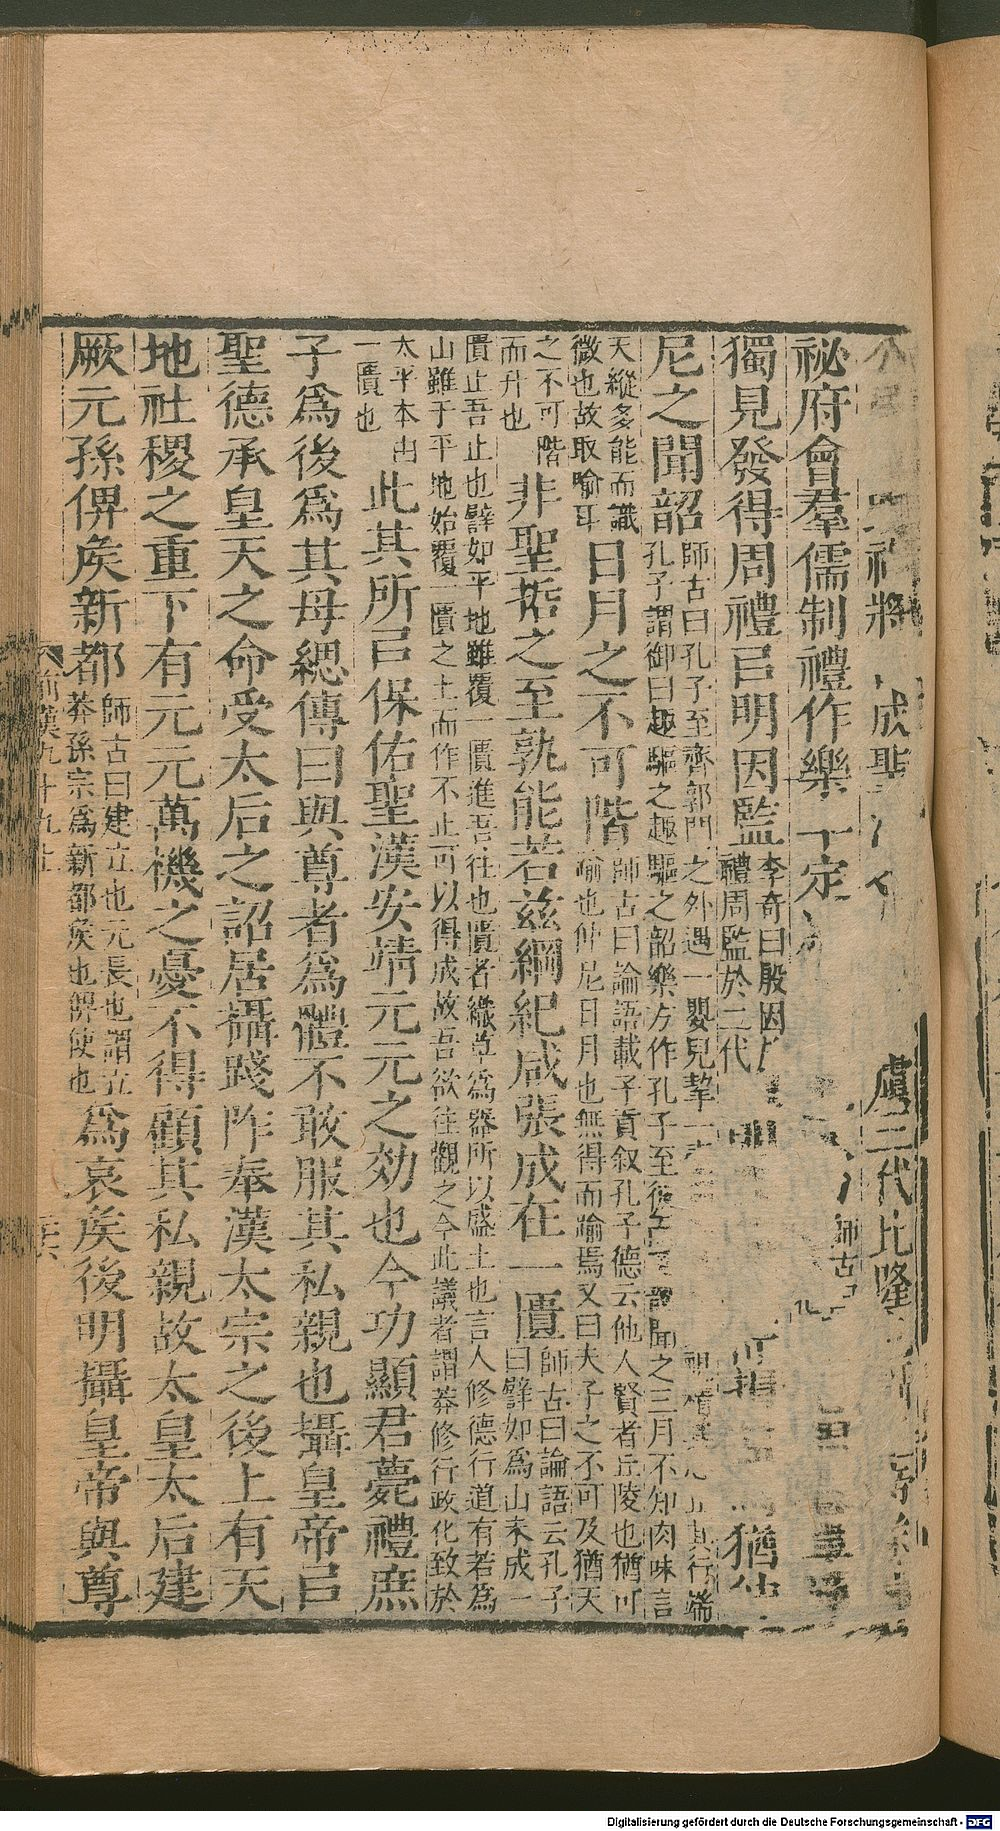 將成聖虞三代比隆
祕府會羣儒制禮作樂定師古
獨見發得周禮㠯明因監李奇曰殷因禮周監於二代猶
尼之聞韶師古曰孔子至齊郭門之外遇一嬰兒挈一其行端孔子謂御曰趣驅之趣驅之韶樂方作孔子至聞之三月不知肉味言
天縱多能而識微也故取喻耳日月之不可階師古曰論語載子貢叙孔子德云他人賢者丘陵也猶可踰也仲尼日月也無得而踰焉又曰夫子之不可及猶天
之不可階而升也非聖哲之至孰能若茲綱紀咸張成在一匱師古曰論語云孔子曰譬如爲山未成一
匱止吾止也譬如平地雖覆一匱進吾往也匱者織草爲器所以盛土也言人修德行道有若爲山雖于平地始覆一匱之土而作不止可以得成故吾欲往觀之今此議者謂莽修行政化致於
太平本由一匱也此其所㠯保佑聖漢安靖元元之効也今功顯君薨禮庶
子爲後爲其母緦傳曰與尊者爲體不敢服其私親也攝皇帝㠯
聖德承皇天之命受太后之詔居攝踐阼奉漢太宗之後上有天
地社稷之重下有元元萬機之憂不得顧其私親故太皇太后建
厥元孫俾矦新都師古曰建立也元長也謂立莽孫宗爲新都矦也俾使也爲哀矦後明攝皇帝與尊
前漢九十九上
Digitalisierung gefördert durch die Deutsche Forschungsgemeinschaft - DFG